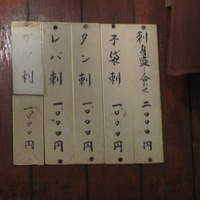 刺身盛り合わせ 二〇〇〇円
子袋刺 一〇〇〇円
タン刺 一〇〇〇円
レバ刺 一〇〇〇円
刺 一〇〇〇円